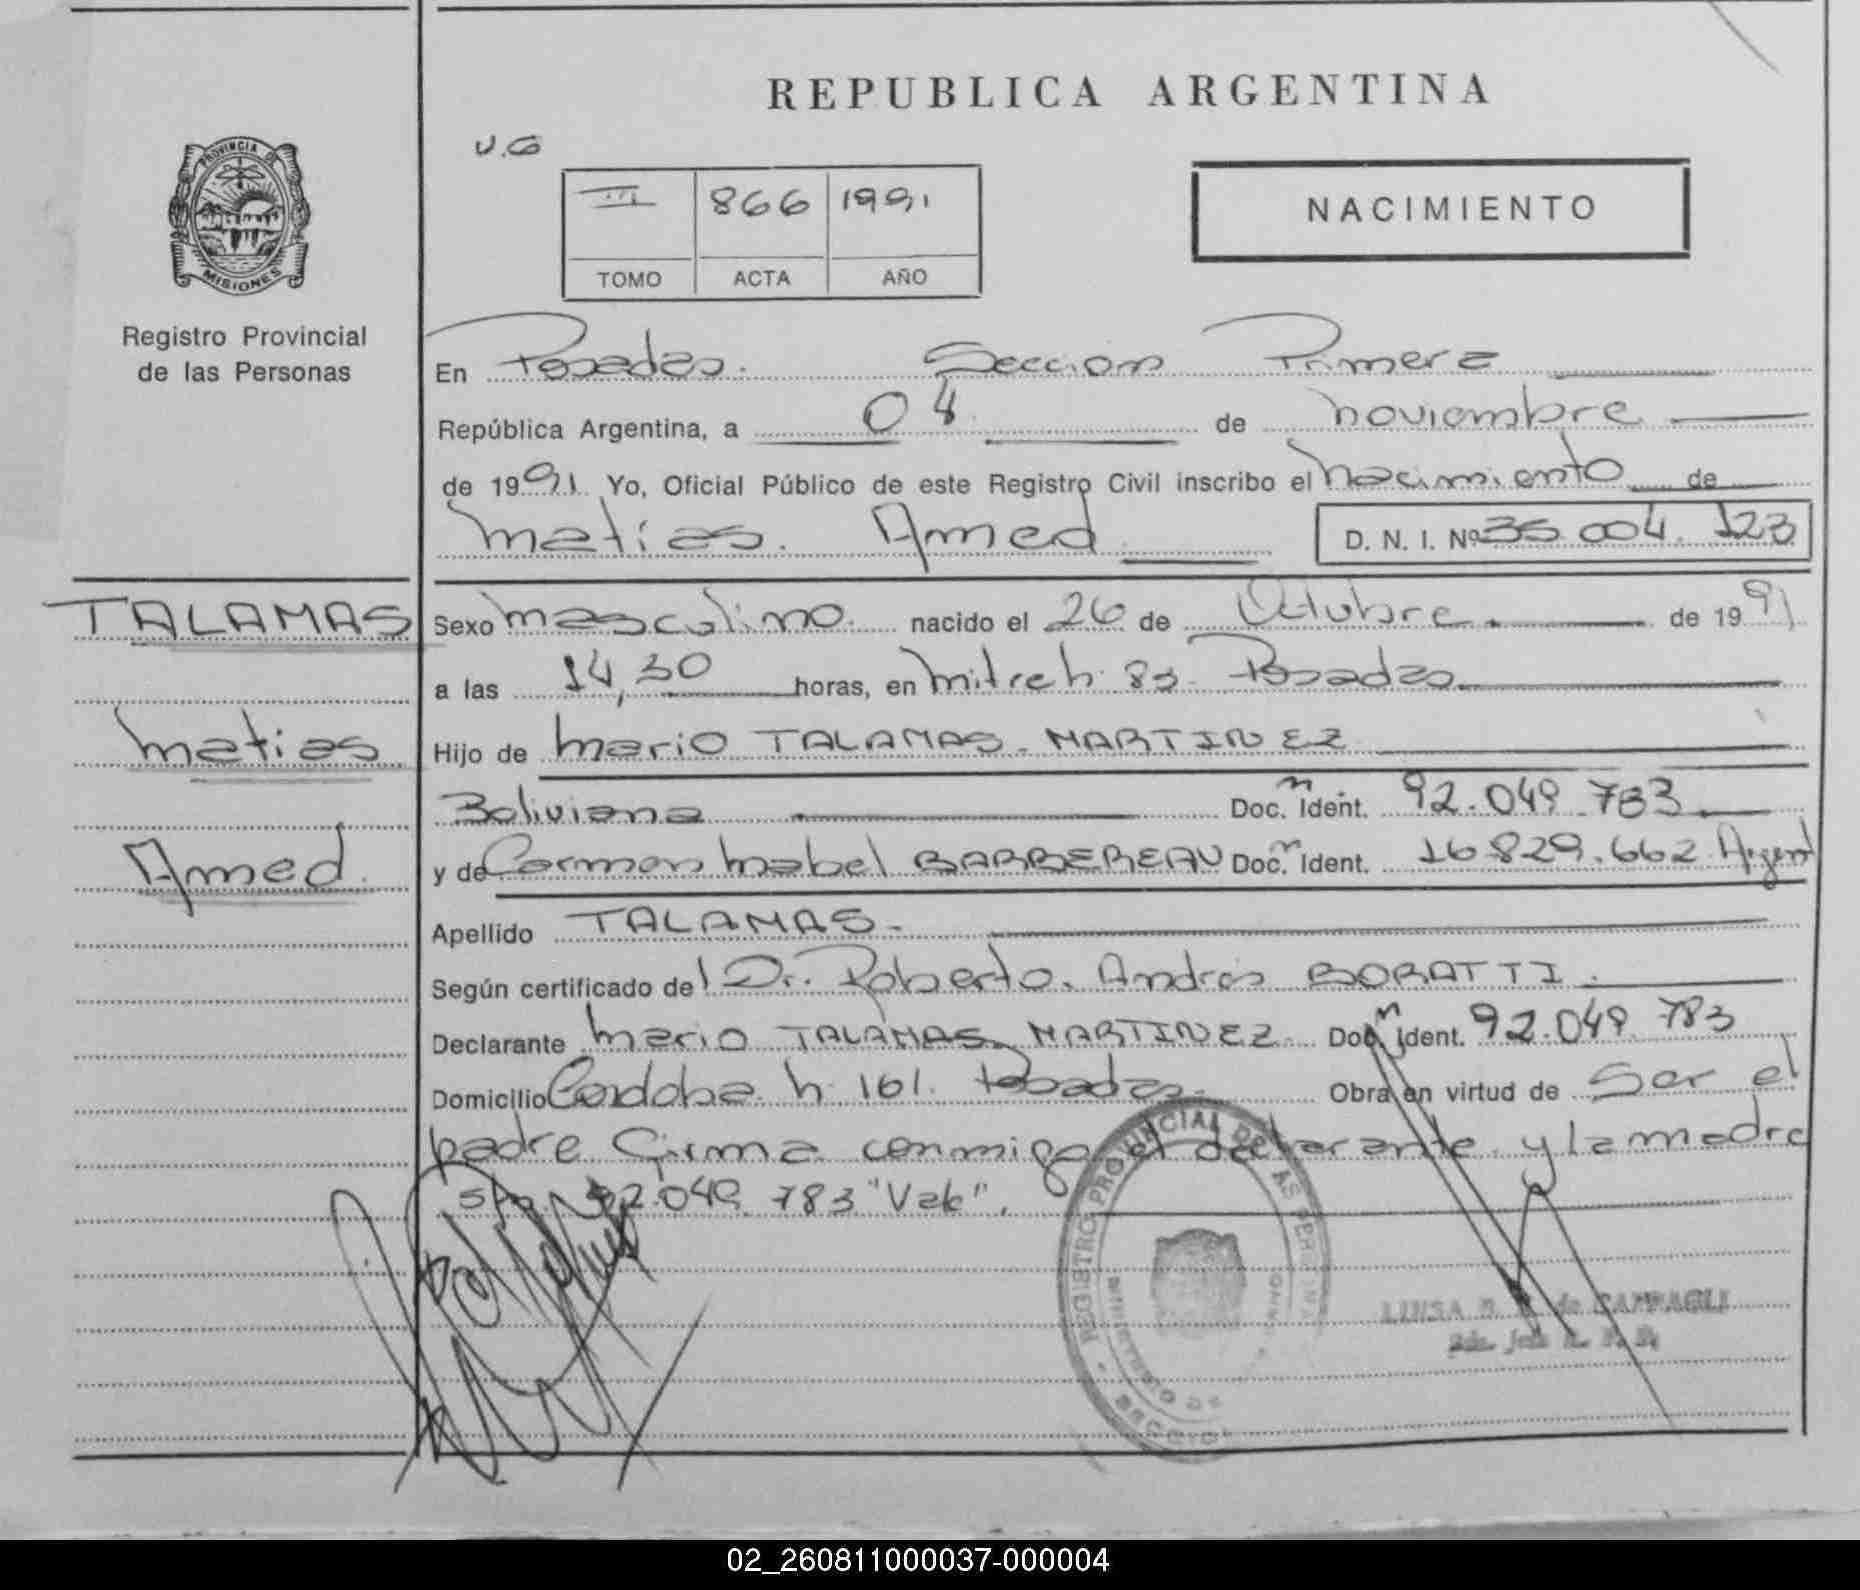 REPUBLICA ARGENTINA
U.G
III 866 1991
TOMO ACTA AÑO
NACIMIENTO
PROVINCIA DE
MISIONES
Registro Provincial
de las Personas
En Posadas. Seccion Primera
República Argentina, a 04 de noviembre
de 1991 Yo, Oficial Público de este Registro Civil inscribo el nacimiento de
Matias Amed D. N. I. Nº 35.004.123
TALAMAS
Matias
Amed
Sexo masculino. nacido el 26 de Octubre de 1991
a las 14,30 horas, en Mitre h. 83 Posadas
Hijo de Mario TALAMAS MARTINEZ
Boliviana Doc. Ident. 92.049.783
y de Carmen Mabel BARBEREAU Doc. Ident. 16.829.662 Argent
Apellido TALAMAS.
Según certificado del Dr. Roberto Andrés BORATTI.
Declarante Mario TALAMAS MARTINEZ Doc. Ident. 92.049.783
Domicilio Cordoba h. 161. Posadas. Obra en virtud de Ser el
padre Firma conmigo el declarante y la madre
s/r 92.049.783 "Vale".
REGISTRO PROVINCIAL DE LAS PERSONAS
MINISTERIO DE
02_260811000037-000004